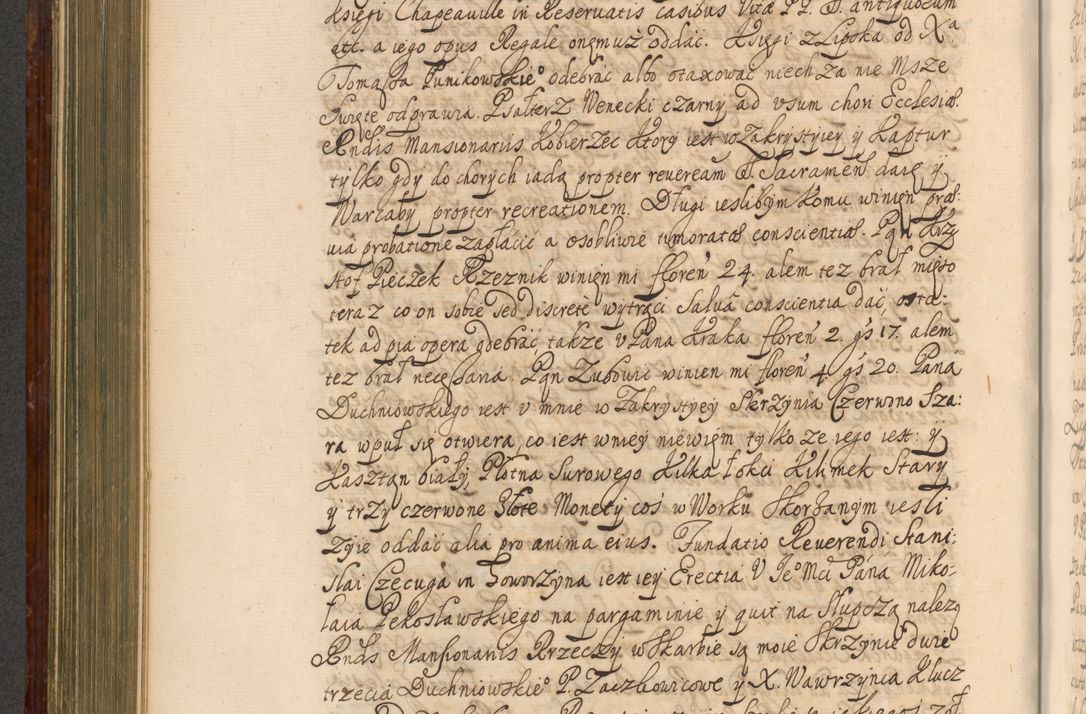 księgi Chapeauille in Reservatis casibus Vitæ PP. S. antiquorum
etc. a iego opus Regale onęmuż oddać. Księgi z Lipska od Xa
Tomasza Punikowskieo odebrać albo otaxować niech za nie Msze
Swięte odprawia. Psałterz Wenecki czarny ad vsum chori Ecclesiæ.
Rndis Mansionariis Kobierzec ktory iest w Zakrystyiey y Kaptur
tylko gdy do chorych iadą propter reveream S. Sacramen daię y
Warcaby propter recreationem. Długi ieslibym komu winien præ-
uia probatione zapłacić a osobliwie timoratæ conscientiæ. Pąn Krzy
sztof Pieczek Rzeznik winien mi floren 24. alem tez brał mięso
teraz co on sobie sed discretè wytrąci salua conscientia dać, osta-
tek ad pia opera odebrać takze v Pana Kraka floren 2. gs 17. alem
tez brał necessaria. Pąn Zubowic winien mi floren 4 gs 20. Paná
Duchniowskiego iest v mnie w Zakrystyey Skrzynia Czerwono Sza-
ra wpuł się otwiera, co iest wniey niewięm tylko ze iego iest: y
Kasztąn biały, Płotna Surowego Kilka łokci Kilimek Stary
y trzy czerwone Złote Monety coś w Worku Skorzanym iesli
zyie oddać alia pro anima eius. Fundatio Reverendi Stani-
slai Czeczuga in Goworzyna iest iey Erectia V Jeo Mci Pána Miko-
łaia Pękosławskiego na pargaminie y quit na Słupczą należą
Rndis Mansionariis Rzeczy w Skarbie są moie Skrzynie dwie
trzecia Duchniowskieo P. Zaczkowicowe y X. Wawrzynca Klucz